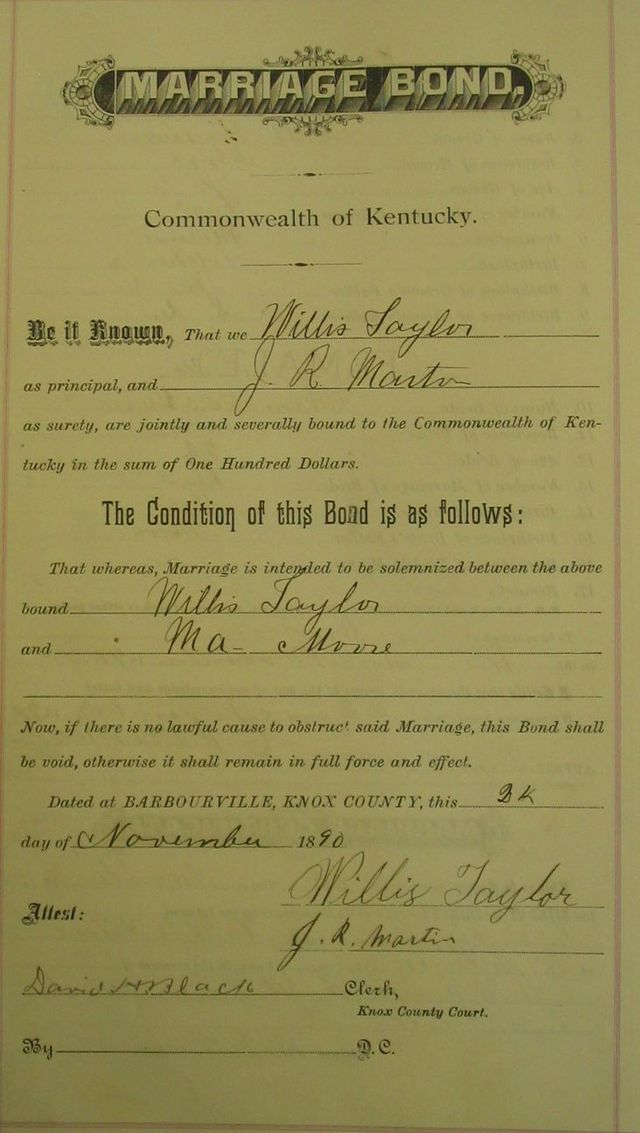 MARRIAGE BOND,
Commonwealth of Kentucky.
Be it Known, That we Willis Taylor
as principal, and J. R. Martin
as surety, are jointly and severally bound to the Commonwealth of Ken-
tucky in the sum of One Hundred Dollars.
The Condition of this Bond is as follows:
That whereas, Marriage is intended to be solemnized between the above
bound Willis Taylor
and Ma- Moore
Now, if there is no lawful cause to obstruct said Marriage, this Bond shall
be void, otherwise it shall remain in full force and effect.
Dated at BARBOURVILLE, KNOX COUNTY, this
day of November 1890
Willis Taylor
Attest:
J. R. Martin
David H Black Clerk,
Knox County Court.
By D. C.